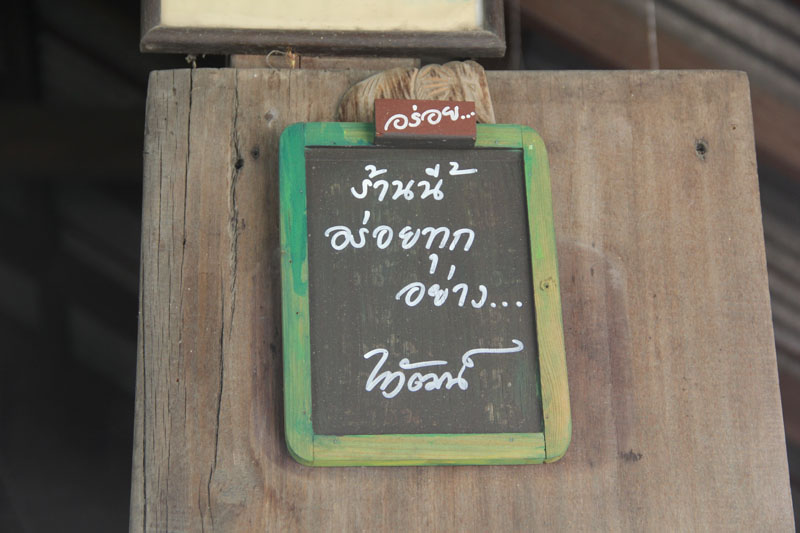 อร่อย...
ร้านนี้
อร่อยทุก
อย่าง...
ไววัฒน์